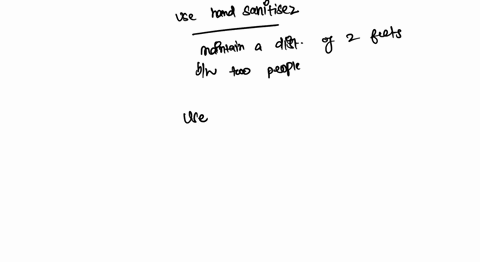 use hand sanitiser
maintain a dist. of 2 feets
b/w two people
Use